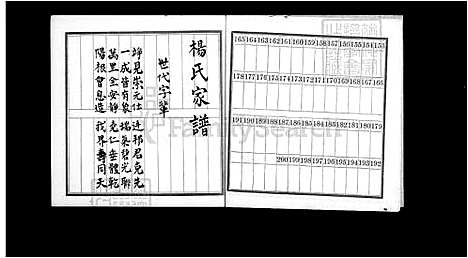 楊氏家譜
世代字輩
竫見崇元仕 連邦君克先
一成皆有象 瑞集碧光聯
萬里全安靜 克仁垂體乾
陽根會息造 我界壽同天
165 164 163 162 161 160 159 158 157 156 155 154 153
178 177 176 175 174 173 172 171 170 169 168 167 166
191 190 189 188 187 186 185 184 183 182 181 180 179
200 199 198 197 196 195 194 193 192
FamilySearch